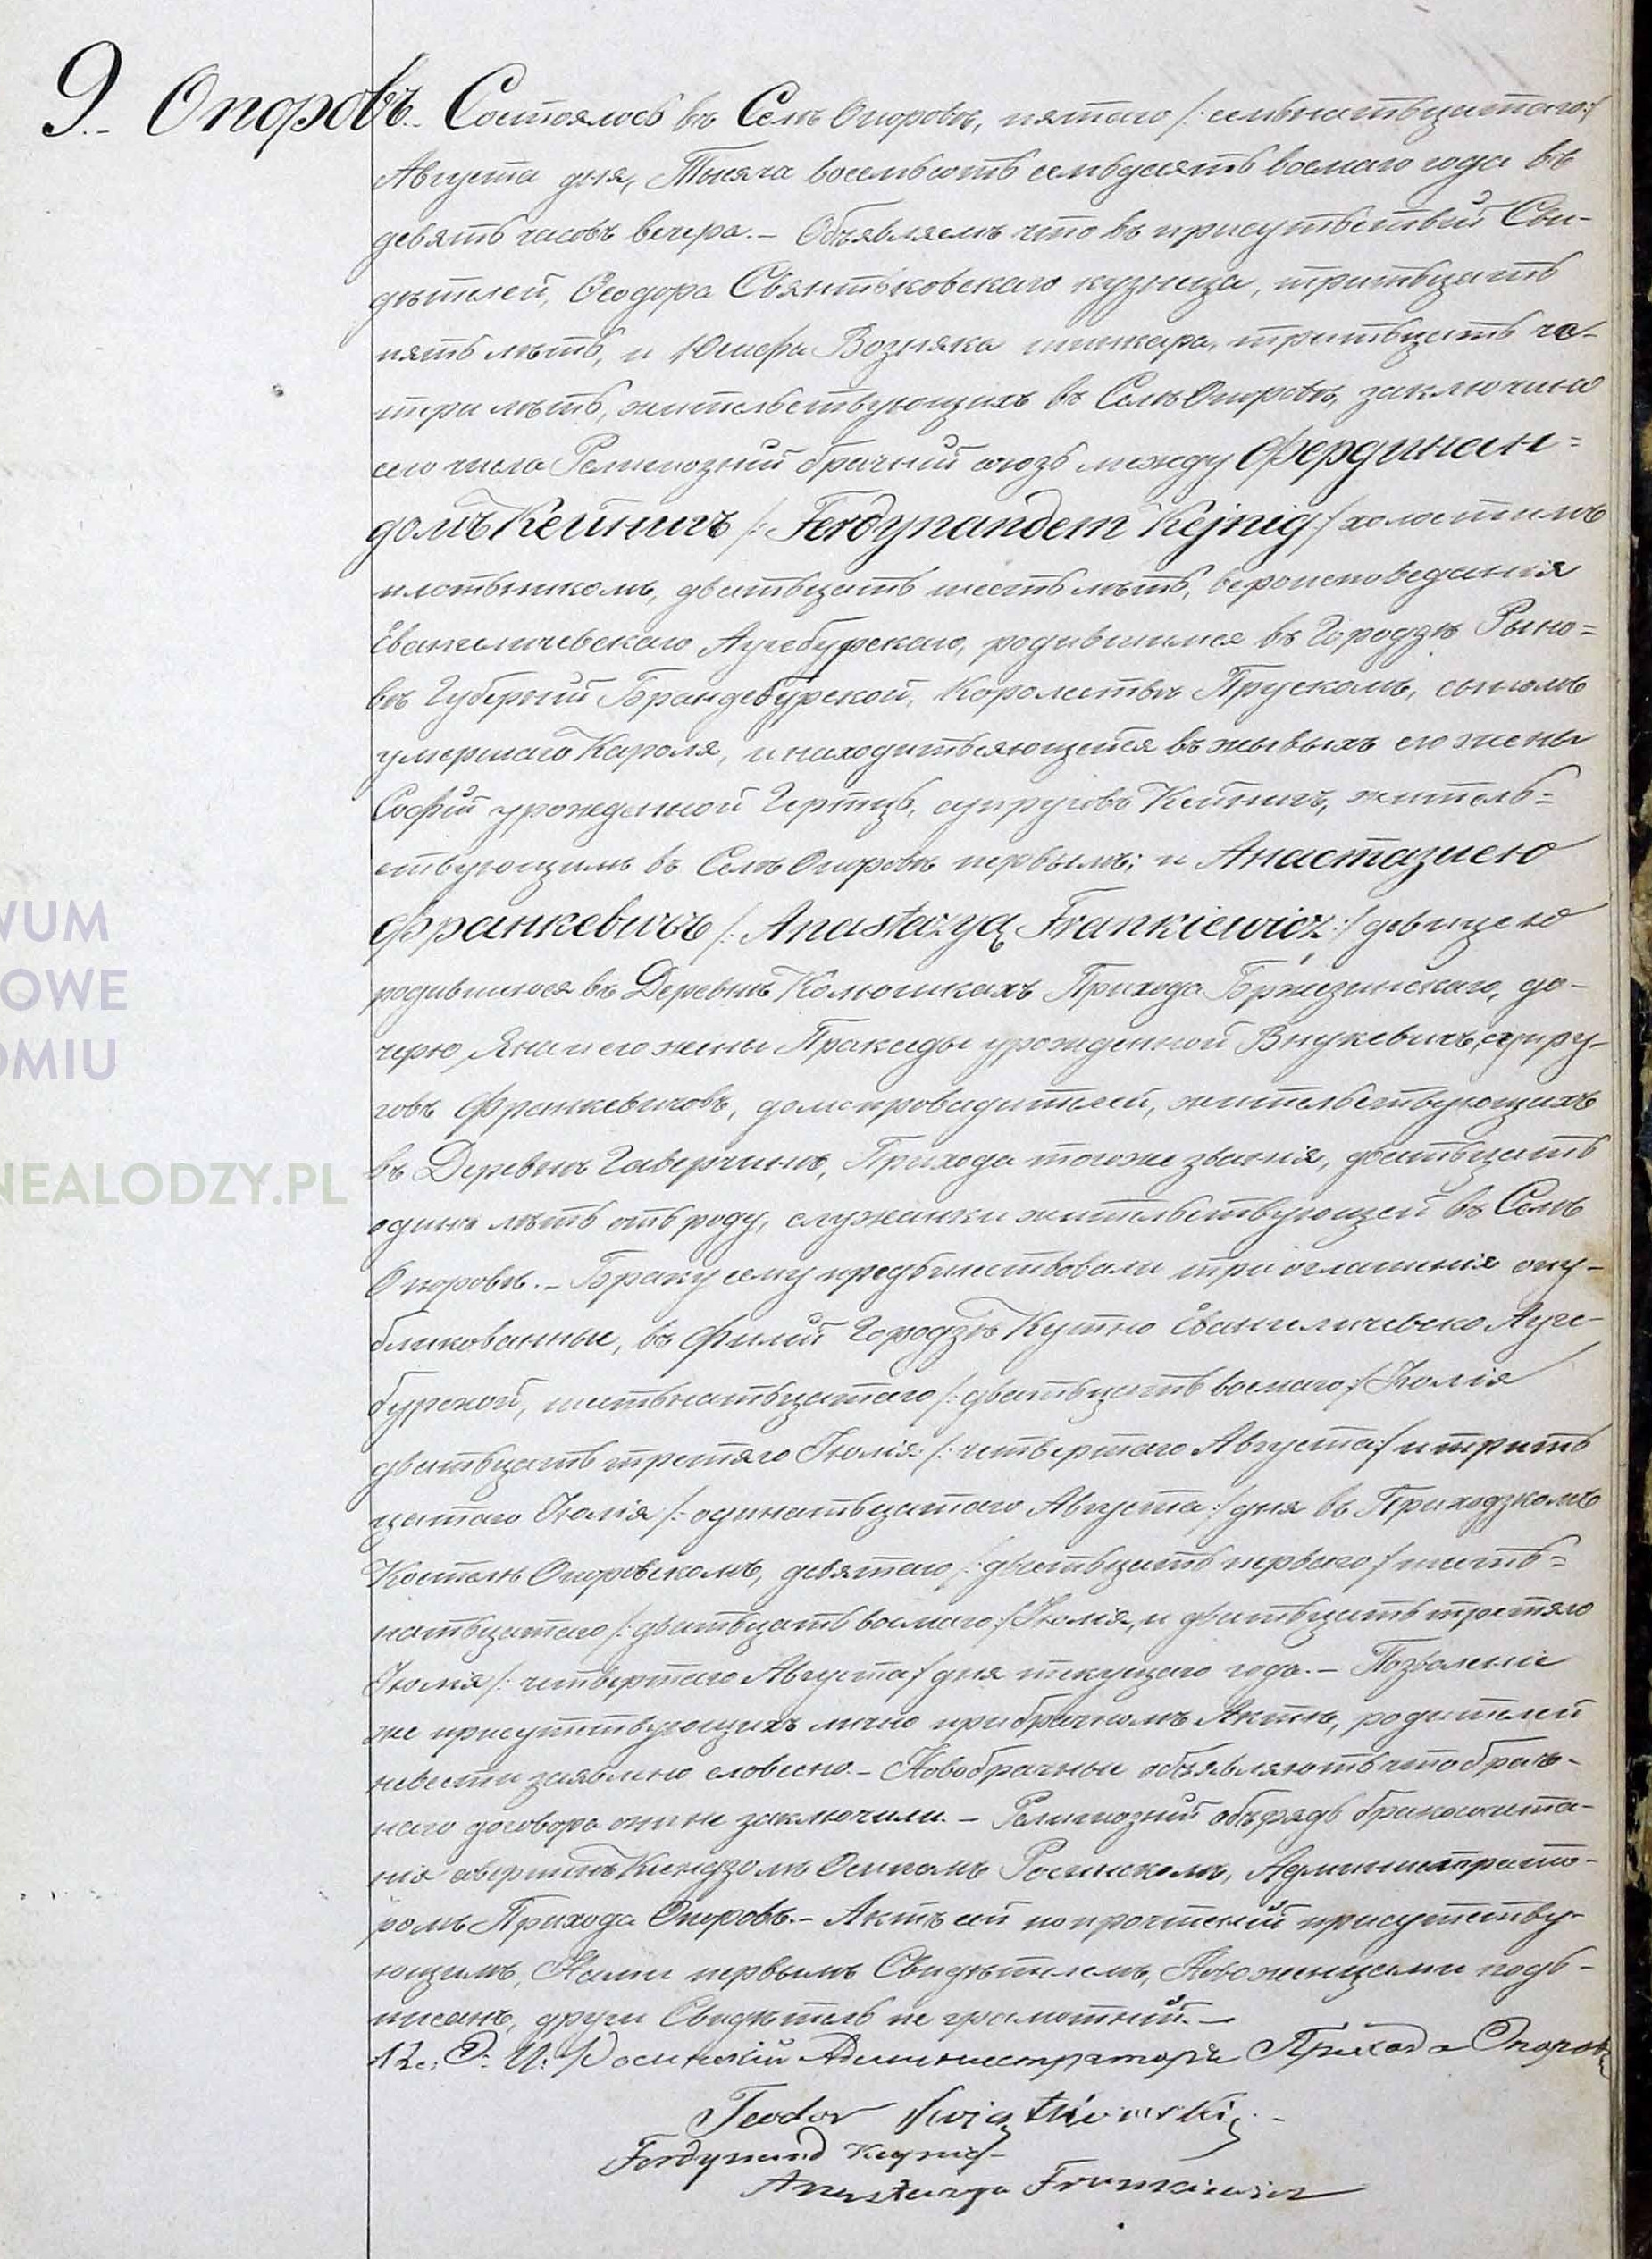 9. Опоровъ. Состоялось въ Селѣ Опоровѣ, пятаго /:семьнатьцатаго:/
Августа дня, Тысяча восемьсотъ семьдесятъ восмаго года въ
девять часовъ вечера. – Объявляемъ что въ присутьствій Сви-
дѣтелей, Ѳеодора Свянтковского кузнеца, тритьцать
пять лѣтъ, и Юзефа Возняка шинкара, тритьцать че-
тери лѣтъ, жительствующихъ въ Селѣ Опоровѣ, заключино
сего числа Религіозній брачній союзъ между Фердинан=
домъ Кейнигъ /: Ferdynandem Kejnig:/ холостимъ
плотьникомъ, дватьцать шесть лѣтъ, вероисповеданія
Евангеличевскаго Аугсбурскаго, родившимся въ Городзѣ Рыно=
въ Губерній Брандебурской, Королествѣ Прускомъ, сыномъ
умершаго Кароля, и находитьсяющейся въ жывыхъ его жены
Софій урожденной Гертцъ, супруговъ Кейнигъ, житель=
ствующимъ въ Селѣ Опоровѣ первымъ; и Анастазиею
Франкевичъ /: Anastazyą Frankiewicz:/ девицею
родившиюся въ Деревнѣ Колюшкахъ Прихода Бржезинскаго, до-
черю Яна и его жены Пракседы урожденной Внукевичъ, супру-
говъ Франкевичовъ, домопровадителей, жительствующихъ
въ Деревнѣ Гаверчинѣ, Прихода тогоже званія, дватьцать
одинъ лѣтъ отъ роду, служанки жительствующей въ Селѣ
Опоровѣ. – Браку сему предшествовали три оглашенія опу-
бликованные, въ Филій Городзѣ Кутно Евангеличевско Аугс-
бурской, шестьнатьцатаго /: дватьцать восмаго:/ Іюлія
дватьцать третяго Іюлія /: четвертаго Августа:/ и трить
цатаго Іюлія /: одинатьцатаго Августа:/ дня въ Приходзкомъ
Костелѣ Опоровскомъ, девятаго /: дватьцать первого:/ шесть=
натьцатаго /: дватьцать восмаго:/ Іюлія, и дватьцать третяго
Іюлія /: четвертаго Августа:/ дня текущаго года. – Позволеніе
же присутствующихъ лично при брачномъ Актѣ, родителей
невести заявлено словесно. – Новобрачные объявляютъ что брач-
наго договора они не заключили. – Религіозній обърядъ бракосочета-
нія совершенъ Ксендзомъ Осипомъ Росинскимъ, Администрато-
ромъ Прихода Опоровъ. – Актъ сей по прочтеній присутству-
ющимъ, Нами первымъ Свидѣтелемъ, Новоженцами подъ-
писанъ, други Свидѣтель не грамотній. –
Кс: І: Росинскій Администраторъ Прихода Опоровъ
Teodor Swiątkowski
Ferdynand
Anastazya Frankiewicz
WUM
OWE
OMIU
NEALODZY.PL